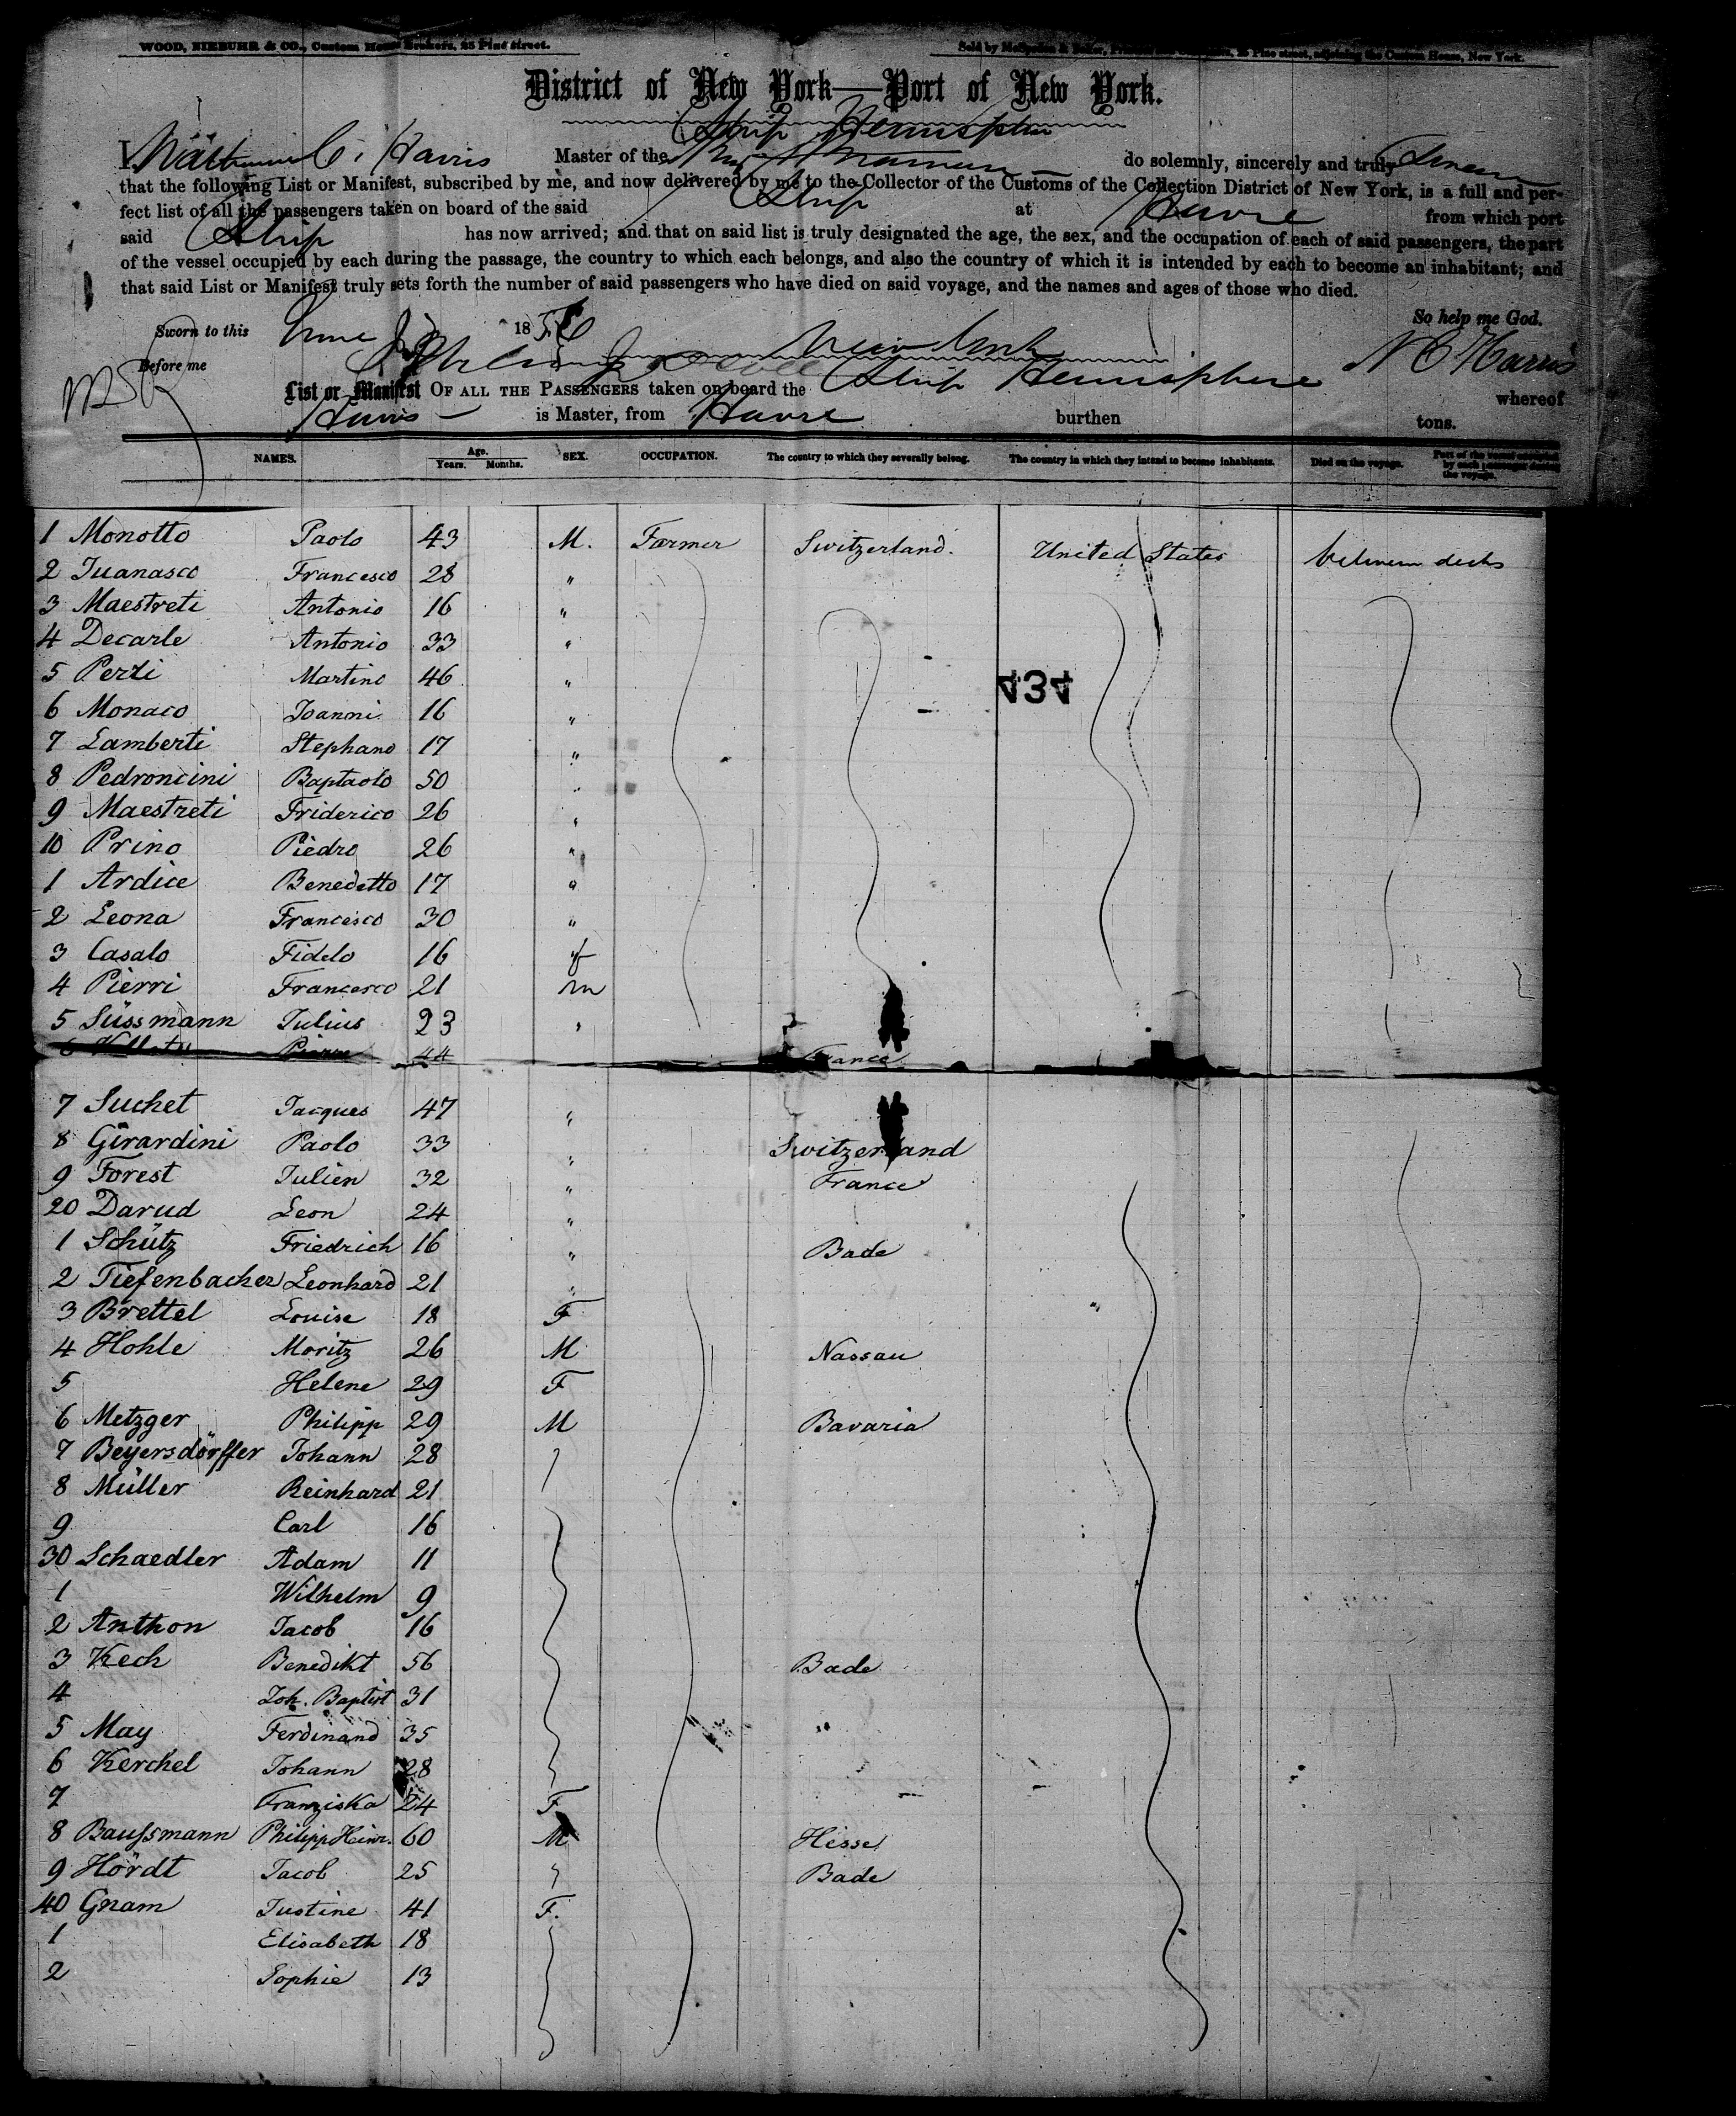 WOOD, NIEBUHR & CO., Custom House Brokers, 25 Pine street.
Sold by 25 Pine street, adjoining the Custom House, New York.
District of New York—Port of New York.
Ship Hemisphere
I, C. Harris Master of the do solemnly, sincerely and truly swear
that the following List or Manifest, subscribed by me, and now delivered by me to the Collector of the Customs of the Collection District of New York, is a full and per-
fect list of all the passengers taken on board of the said Ship at Havre from which port
said Ship has now arrived; and that on said list is truly designated the age, the sex, and the occupation of each of said passengers, the part
of the vessel occupied by each during the passage, the country to which each belongs, and also the country of which it is intended by each to become an inhabitant; and
that said List or Manifest truly sets forth the number of said passengers who have died on said voyage, and the names and ages of those who died.
So help me God.
Sworn to this June 18
Before me New York N C Harris
List or Manifest OF ALL THE PASSENGERS taken on board the Ship Hemisphere whereof
Harris is Master, from Havre burthen tons.
NAMES. Age. Years. Months. SEX. OCCUPATION. The country to which they severally belong. The country in which they intend to become inhabitants. Died on the voyage. Part of the vessel occupied by each passenger during the voyage.
1 Monotto Paolo 43 M. Farmer Switzerland. United States between decks
2 Juanasco Francesco 28 "
3 Maestreti Antonio 16 "
4 Decarle Antonio 33 "
5 Perzi Martino 46 "
434
6 Monaco Joanni 16 "
7 Lamberti Stephano 17 "
8 Pedroncini Baptaolo 50 "
9 Maestreti Friderico 26 "
10 Prino Piedro 26 "
1 Ardice Benedetto 17 "
2 Leona Francesco 30 "
3 Casalo Fidelo 16 f
4 Pierri Francesco 21 m
5 Süssmann Julius 23 "
6 Pierre 44 France
7 Suchet Jacques 47 "
8 Girardini Paolo 33 " Switzerland
9 Forest Julien 32 " France
20 Darud Leon 24 "
1 Schütz Friedrich 16 " Bade
2 Tiefenbacher Leonhard 21 "
3 Brettel Louise 18 F
4 Hohle Moritz 26 M Nassau
5 Helene 29 F
6 Metzger Philipp 29 M Bavaria
7 Beyersdörffer Johann 28
8 Müller Reinhard 21
9 Carl 16
30 Schaedler Adam 11
1 Wilhelm 9
2 Anthon Jacob 16
3 Kech Benedikt 56 Bade
4 Joh. Baptist 31
5 May Ferdinand 35 "
6 Kerchel Johann 28
7 Franziska 24 F
8 Baussmann Philipp Heinr. 60 M Hesse
9 Hördt Jacob 25 Bade
40 Gnam Justine 41 F.
1 Elisabeth 18
2 Sophie 13